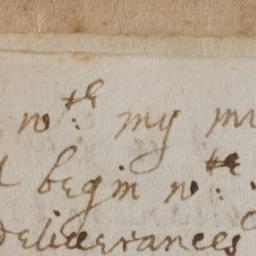 wth: my
begin wth:
deliuerances